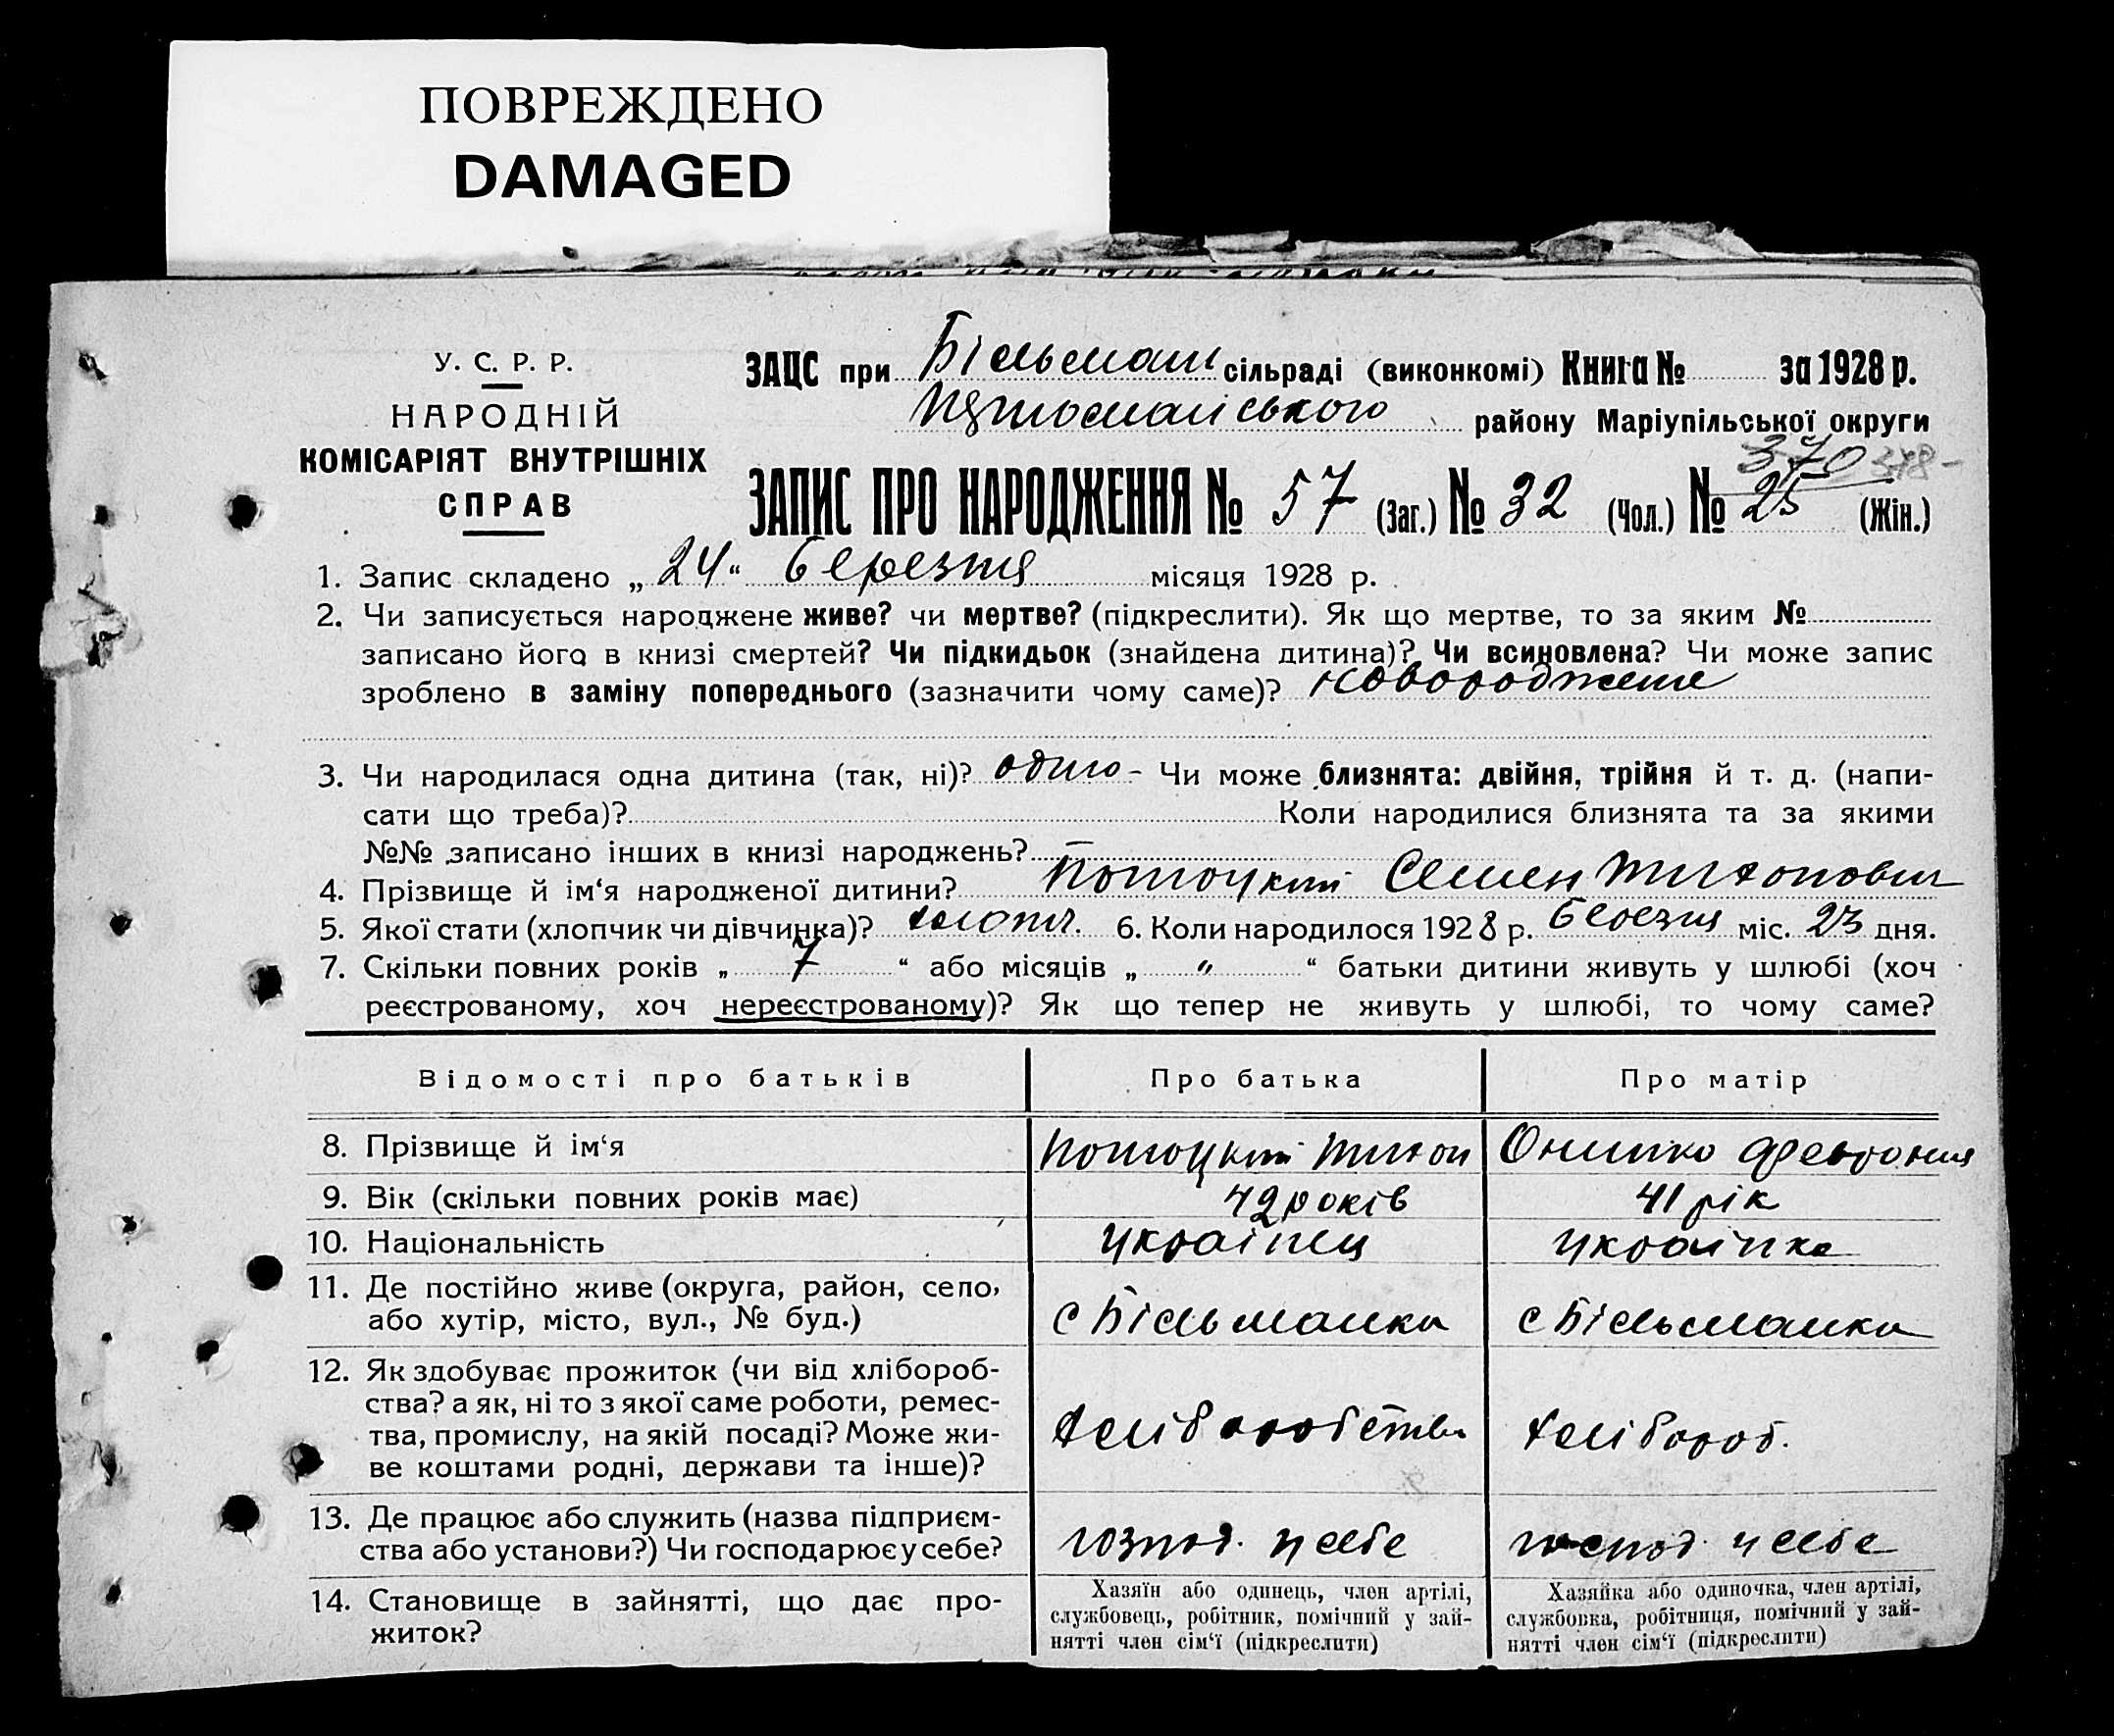 ПОВРЕЖДЕНО
DAMAGED
У. С. Р. Р.
НАРОДНІЙ
КОМІСАРІЯТ ВНУТРІШНІХ
СПРАВ
ЗАЦС при Більман сільраді (виконкомі) Книга № за 1928 р.
Першомайського району Маріупільської округи
370 378-
ЗАПИС ПРО НАРОДЖЕННЯ № 57 (Заг.) № 32 (Чол.) № 25 (Жін.)
1. Запис складено „24“ березня місяця 1928 р.
2. Чи записується народжене живе? чи мертве? (підкреслити). Як що мертве, то за яким №
записано його в книзі смертей? Чи підкидьок (знайдена дитина)? Чи всиновлена? Чи може запис
зроблено в заміну попереднього (зазначити чому саме)? новороджене
3. Чи народилася одна дитина (так, ні)? одно - Чи може близнята: двійня, трійня й т. д. (напи-
сати що треба)? Коли народилися близнята та за якими
№№ записано інших в книзі народжень? —
4. Прізвище й ім‘я народженої дитини? Потоцкий Семен Тихонович
5. Якої стати (хлопчик чи дівчинка)? хлопч. 6. Коли народилося 1928 р. березня міс. 23 дня.
7. Скільки повних років „ 7 “ або місяців „ " “ батьки дитини живуть у шлюбі (хоч
реєстрованому, хоч нереєстрованому)? Як що тепер не живуть у шлюбі, то чому саме?
Відомості про батьків Про батька Про матір
8. Прізвище й ім‘я Потоцкий Тихон Онипко Феврония
9. Вік (скільки повних років має) 42 років 41 рік
10. Національність українец українка
11. Де постійно живе (округа, район, село,
або хутір, місто, вул., № буд.) с Більманка с Більманка
12. Як здобуває прожиток (чи від хлібороб-
ства? а як, ні то з якої саме роботи, ремес-
тва, промислу, на якій посаді? Може жи-
ве коштами родні, держави та інше)? хліборобство хлібороб.
13. Де працює або служить (назва підприєм-
ства або установи?) Чи господарює у себе? господ. у себе господ. у себе
14. Становище в зайнятті, що дає про-
житок?
Хазяїн або одинець, член артілі,
службовець, робітник, помічний у зай-
нятті член сім‘ї (підкреслити)
Хазяйка або одиночка, член артілі,
службовка, робітниця, помічний у зай-
нятті член сім‘ї (підкреслити)